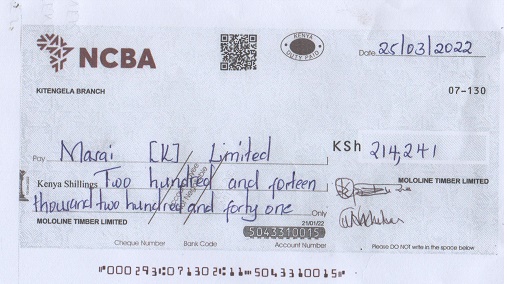 NCBA
KENYA
DUTY PAID
Date 25/03/2022
KITENGELA BRANCH
07-130
Pay Marai [K] Limited
KSh 214,241
Kenya Shillings Two hundred and forteen
thousand two hundred and forty one Only
MOLOLINE TIMBER LIMITED
MOLOLINE TIMBER LIMITED
21/01/22
5043310015
Cheque Number Bank Code Account Number
Please DO NOT write in the space below
"000293"07130 2"11" 5043310015"